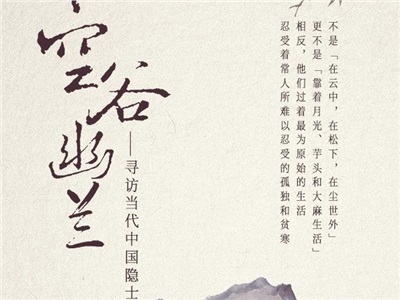 空谷幽兰
——寻访当代中国隐士
不是「在云中，在松下，在尘世外」
更不是「靠着月光、芋头和大麻生活」
相反，他们过着最为原始的生活
忍受着常人所难以忍受的孤独和贫寒